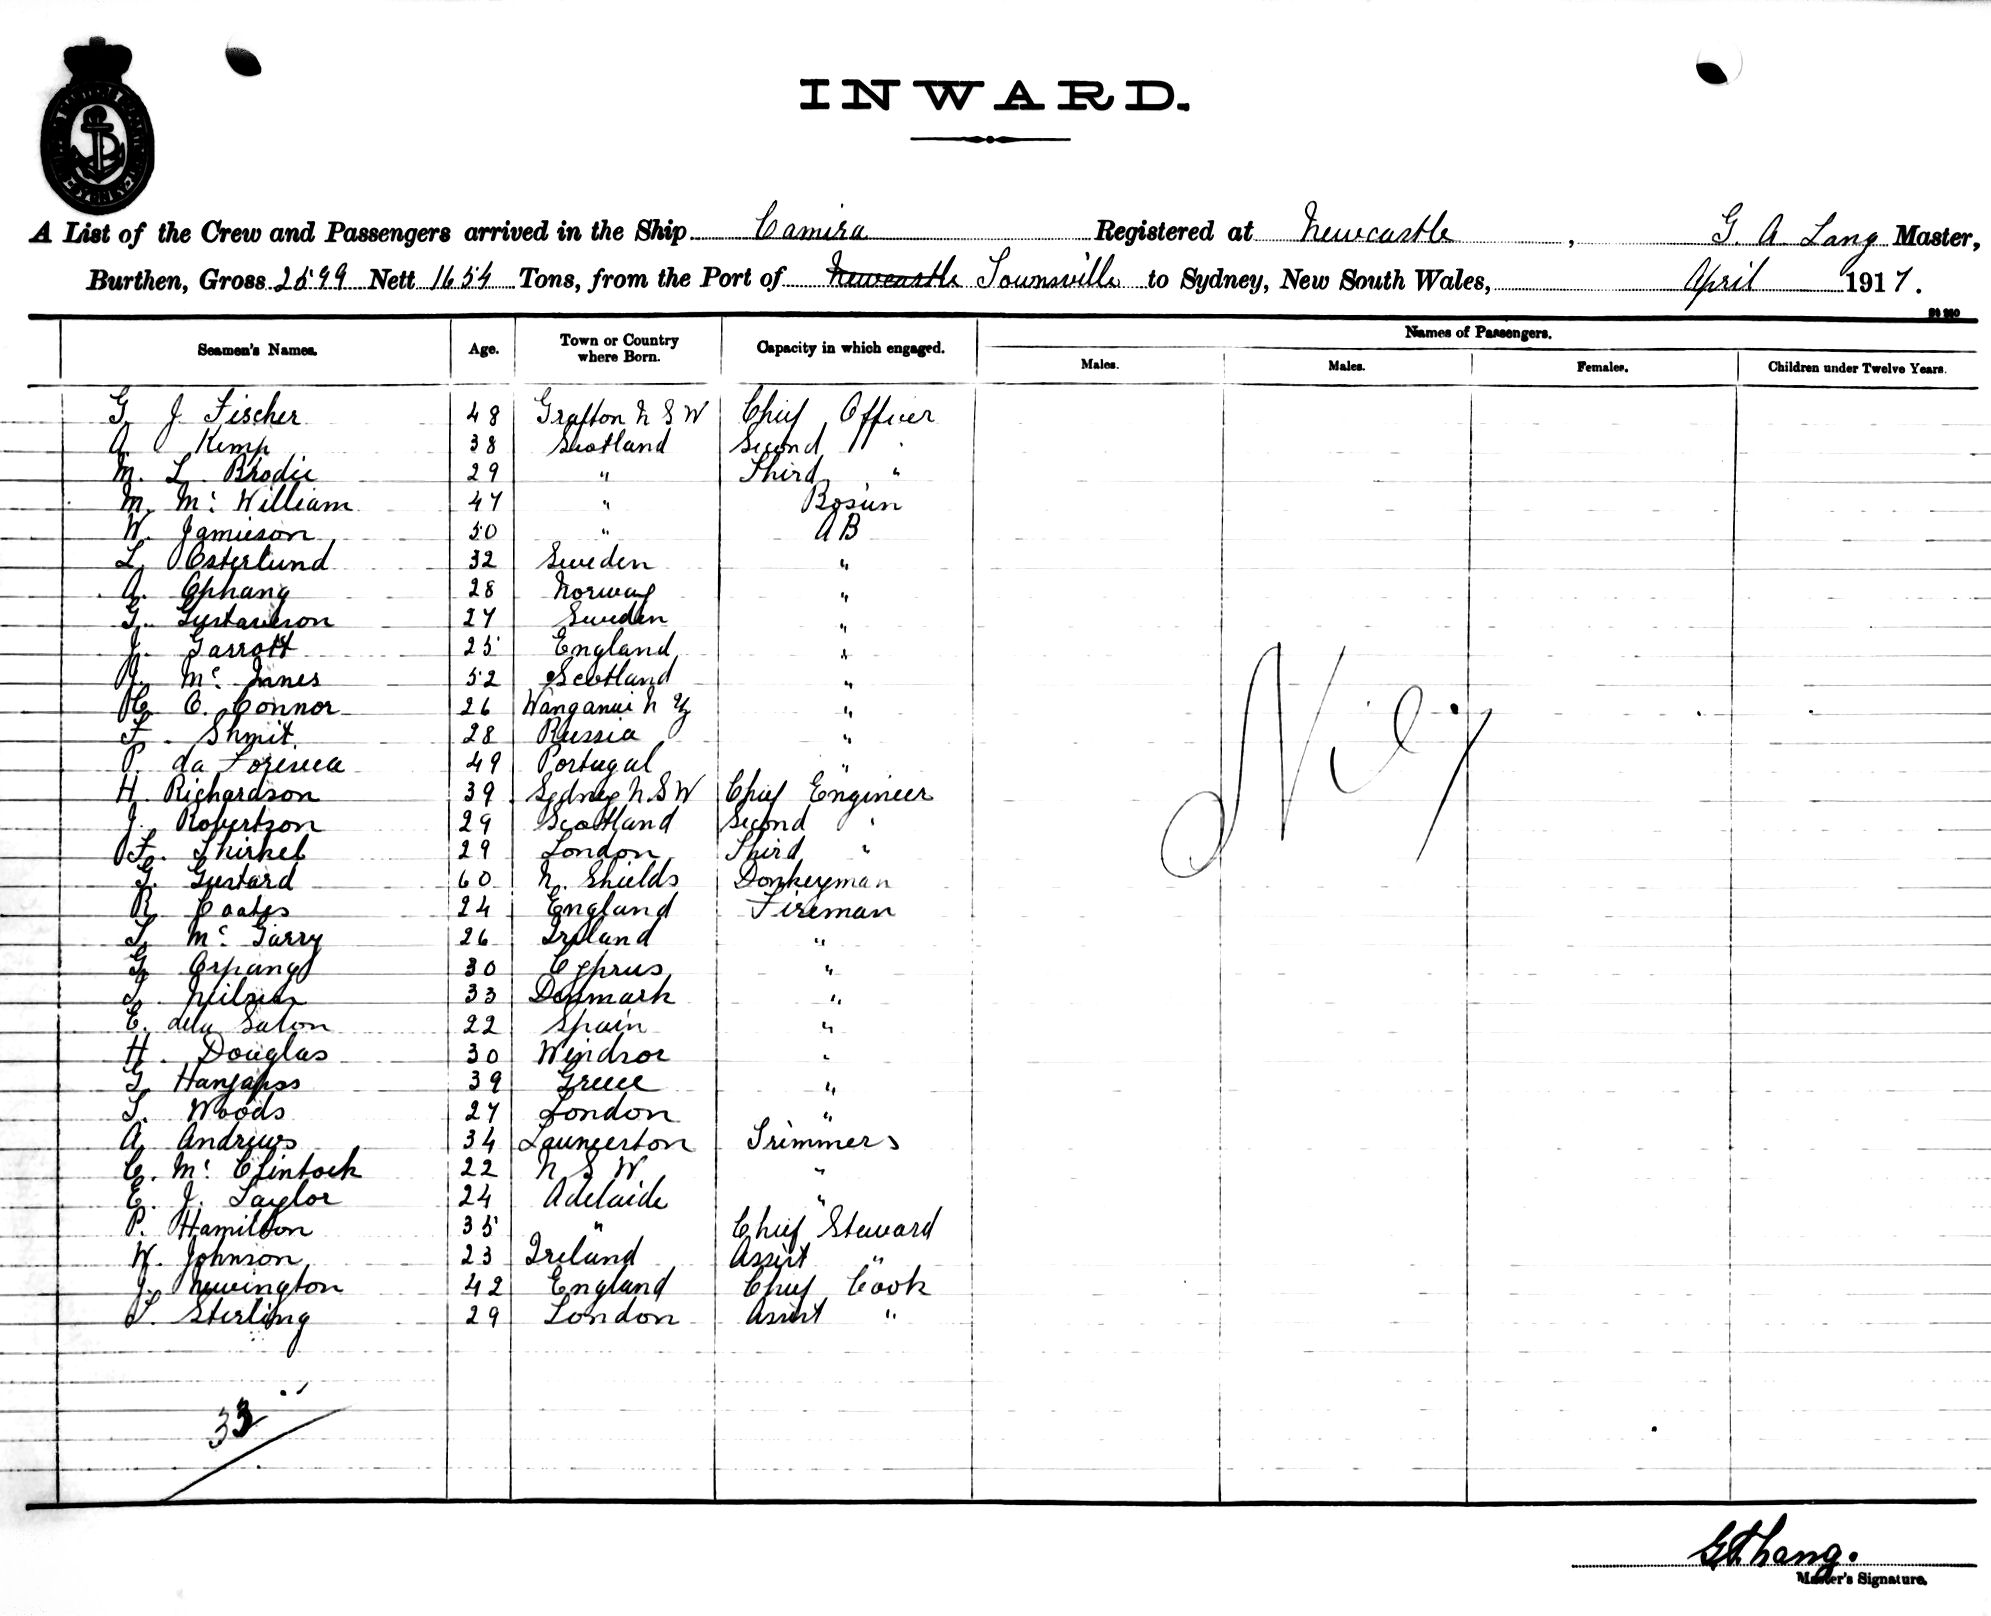 INWARD.
A List of the Crew and Passengers arrived in the Ship Camira Registered at Newcastle, G. A Lang Master,
Burthen, Gross 2599 Nett 1654 Tons, from the Port of Newcastle Townsville to Sydney, New South Wales, April 1917.
Seamen's Names. Age. Town or Country where Born. Capacity in which engaged. Names of Passengers.
Males. Males. Females. Children under Twelve Years.
G J Fischer 48 Grafton N S W Chief Officer
A. Kemp 38 Scotland Second "
M. L. Brodie 29 " Third "
M. Mc William 47 " Bosun
W. Jamieson 50 " AB
L. Osterlund 32 Sweden "
A. Ophang 28 Norway "
G. Gustaveson 27 Sweden "
J. Garrott 25 England "
Mc Innes 52 Scotland "
O. Connor 26 Wanganui N Z "
F. Shmit 28 Russia "
P. da 49 Portugal "
H. Richardson 39 Sydney N.S.W Chief Engineer
J. Robertson 29 Scotland Second "
F. Thirkel 29 London Third "
G. Gustard 60 N. Shields Donkeyman
R. Coates 24 England Fireman
T. Mc Garry 26 Ireland "
G. Orpanos 30 Cyprus "
33 Denmark "
E. dela Salon 22 Spain "
H. Douglas 30 Windsor "
G. 39 Greece "
T. Woods 27 London "
A. Andrews 34 Launceston Trimmers
C. Mc Clintock 22 N S W "
E. J. Taylor 24 Adelaide "
P. Hamilton 35 " Chief Steward
W. Johnson 23 Ireland Assist "
J. Newington 42 England Chief Cook
T. Sterling 29 London Assist "
Nil
33
G A Lang.
Master's Signature.